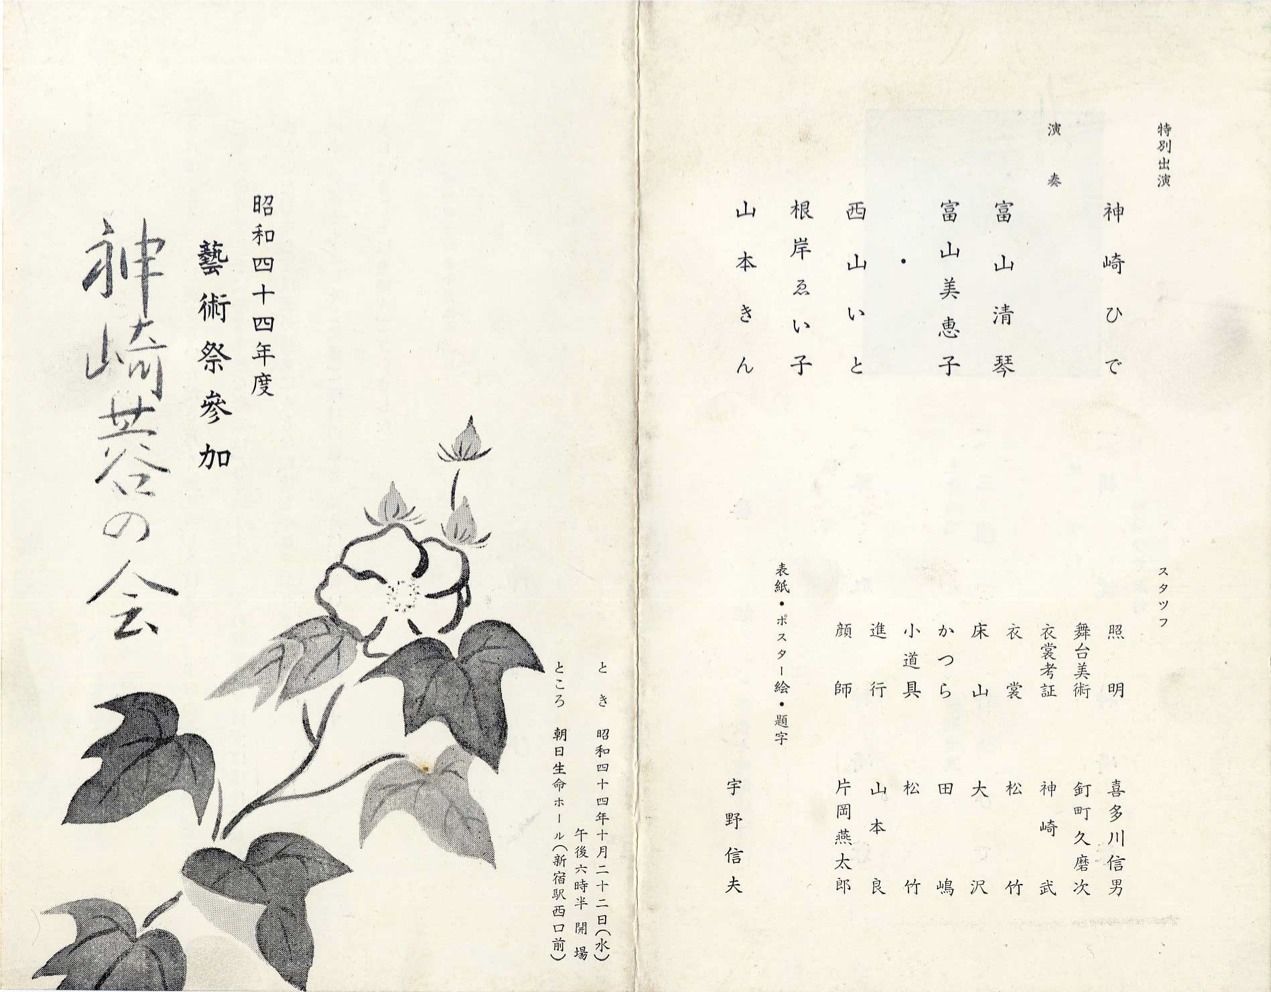 特別出演
神崎ひで
演奏
富山清琴
富山美恵子
・
西山いと
根岸ゑい子
山本きん
スタツフ
照明 喜多川信男
舞台美術 釘町久磨次
衣裳考証 神崎武
衣裳 松竹
床山 大沢
かつら 田嶋
小道具 松竹
進行 山本良
顔師 片岡燕太郎
表紙・ポスター絵・題字
宇野信夫
昭和四十四年度
藝術祭參加
神崎蓉の会
とき 昭和四十四年十月二十二日(水)
午後六時半開場
ところ 朝日生命ホール(新宿駅西口前)